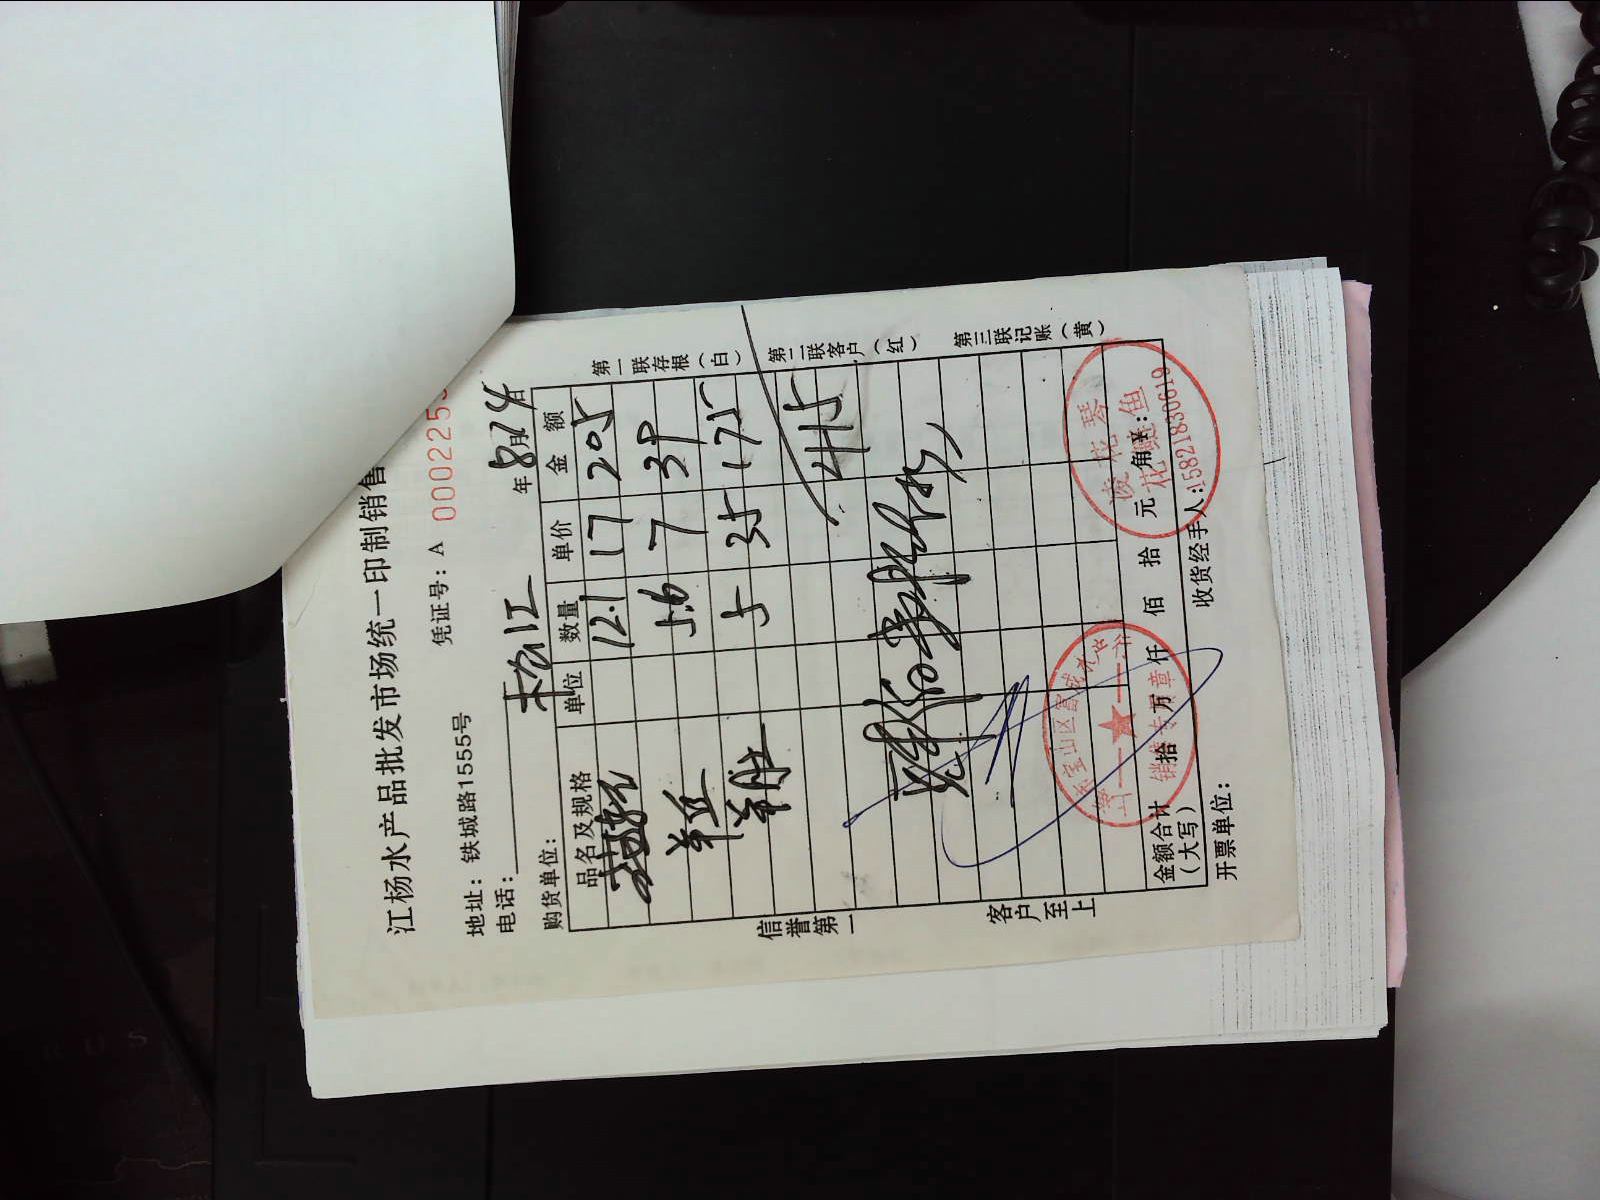 江杨水产品批发市场统一印制销售
地址：铁城路1555号
凭证号：A 000225
电话：
购货单位： 松江 年 8月24日
品名及规格 单位 数量 单价 金额
12.1 17 205
5.6 7 39
5 35 175
415
金额合计（大写） 拾 万 仟 佰 拾 元 角
开票单位： 收货经手人：
信誉第一
客户至上
第一联存根（白）
第二联客户（红）
第三联记账（黄）
宝山区
销售专用章
花鲢鱼
15821830619